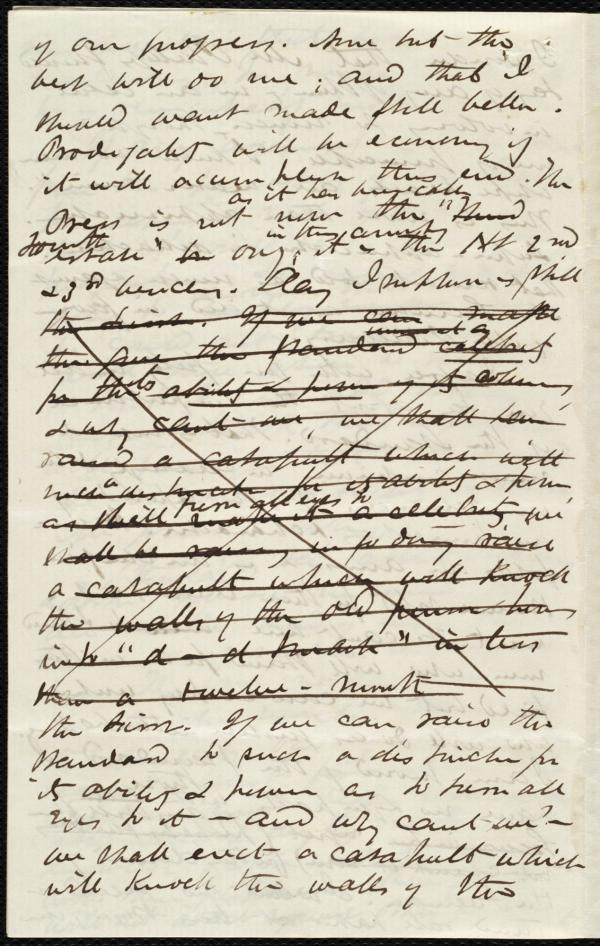 of our progress. None but the
best will do me; and that I
should want made still better.
Prodigality will be economy if
it will accomplish this end. The
as it has been called
Press is not now the "Third
Fourth in this country
estate" only, it is the 1st 2nd
& 3rd . Slavery I suppose is still
the divine. If we can make
the Era the standard celebrity
for its ability & power of its columns
& why can't we, we shall have
raised a catapult which will
such a distinction for its ability & power
turn all eyes to
as shall make it a celebrity we
shall be in so doing raise
a catapult which will knock
the walls of the old prison house
into "d—d smash" in less
than a twelve-month
the If we can raise the
standard to such a distinction for
its ability & power as to turn all
eyes to it — and why can't we? —
we shall erect a catapult which
will knock the walls of the